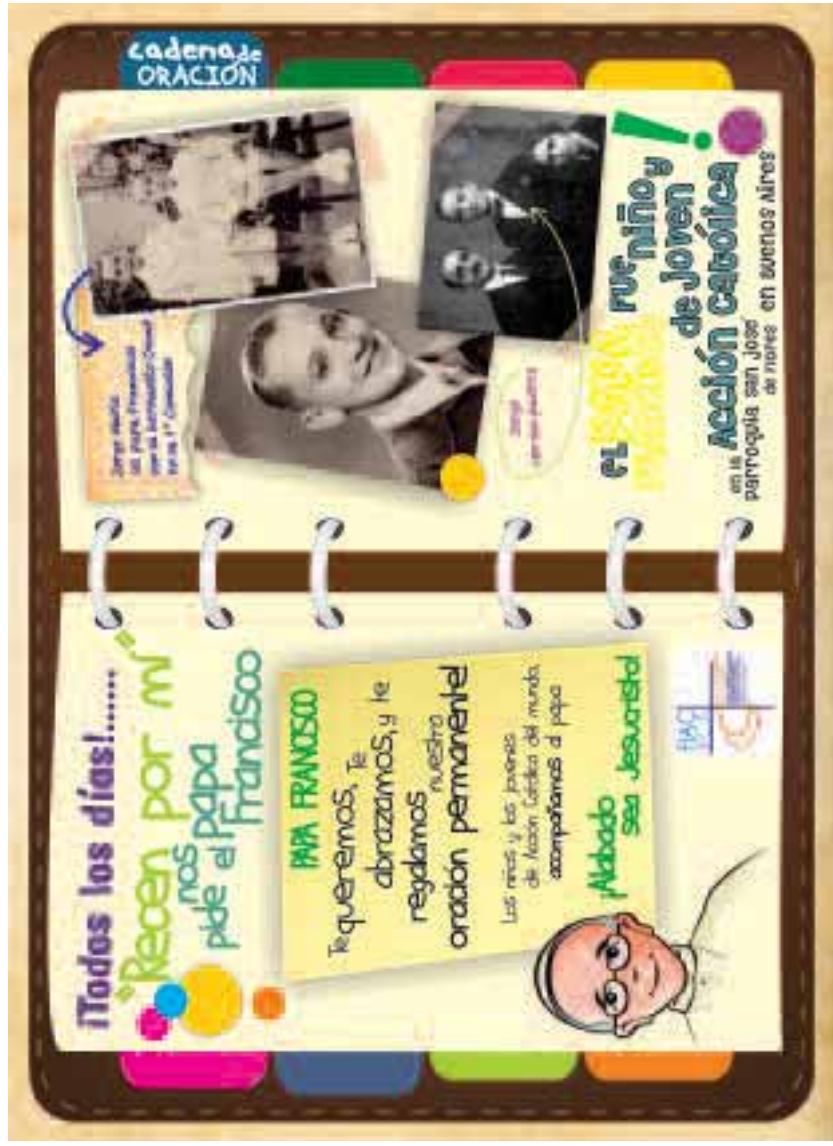 ¡Todos los días!......
"Recen por mí"
nos
pide el papa
Francisco
PAPA FRANCISCO
Te queremos, Te
abrazamos, y te
regalamos nuestra
oración permanente!
Los niños y los jovenes
de Acción Católica del mundo,
acompañamos al papa
¡Alabado
sea Jesucristo!
FIAC
cadena de
ORACIÓN
Jorge Mario
el papa Francisco
en su 1ª Comunión
Jorge
el
fue niño y
de joven
Acción Católica
en la
parroquia san josé
de flores en buenos aires
!